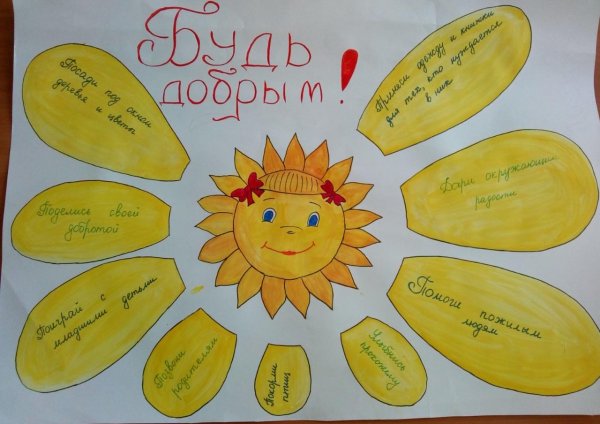 Будь
добрым!
Посади под окном
деревья и цветы
Принеси одежду и книжки
для тех, кто нуждается
в них
Поделись своей
добротой
Дари окружающим
радость
Поиграй с
младшими детьми
Помоги пожилым
людям
Позвони
родителям
Покорми
птиц
Улыбнись
прохожему